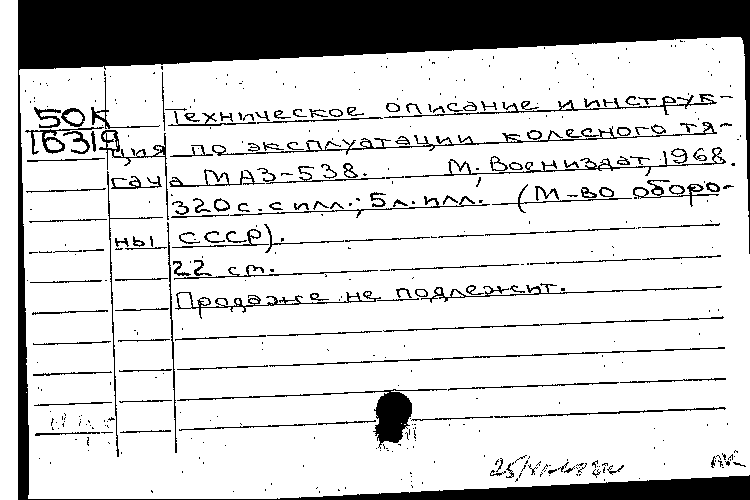 50К
16319
Техническое описание и инструк-
ция по эксплуатации колесного тя-
гача МАЗ-538. М, Воениздат, 1968.
320с. с илл.; 5л. илл. (М-во оборо-
ны СССР).
22 см.
Продаже не подлежит.